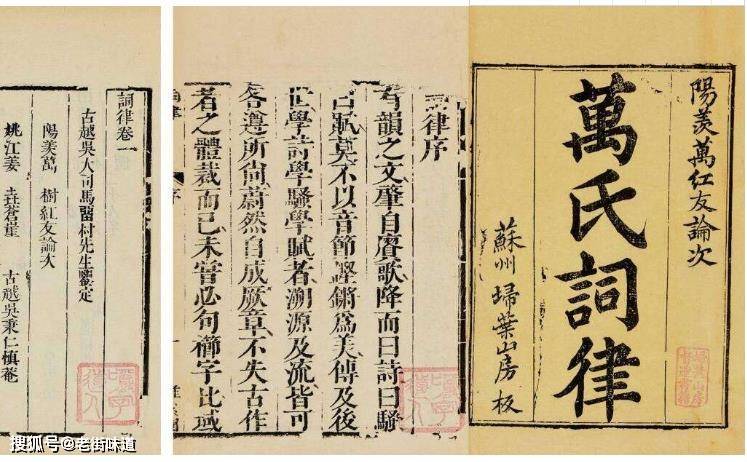 陽羨萬紅友論次
萬氏詞律
蘇州 埽葉山房板
律序
有韻之文肇自賡歌降而曰詩曰騷
曰賦莫不以音節鏗鏘爲美傳及後
世學詩學騷學賦者溯源及流皆可
各遵所尚蔚然自成厥章不失古作
者之體裁而已未嘗必句櫛字比或
詞律卷一
古越吳大司馬畱村先生鑒定
陽羨萬 樹紅友論次
姚江姜 垚蒼崖 古越吳秉仁慎菴
搜狐号@老街味道